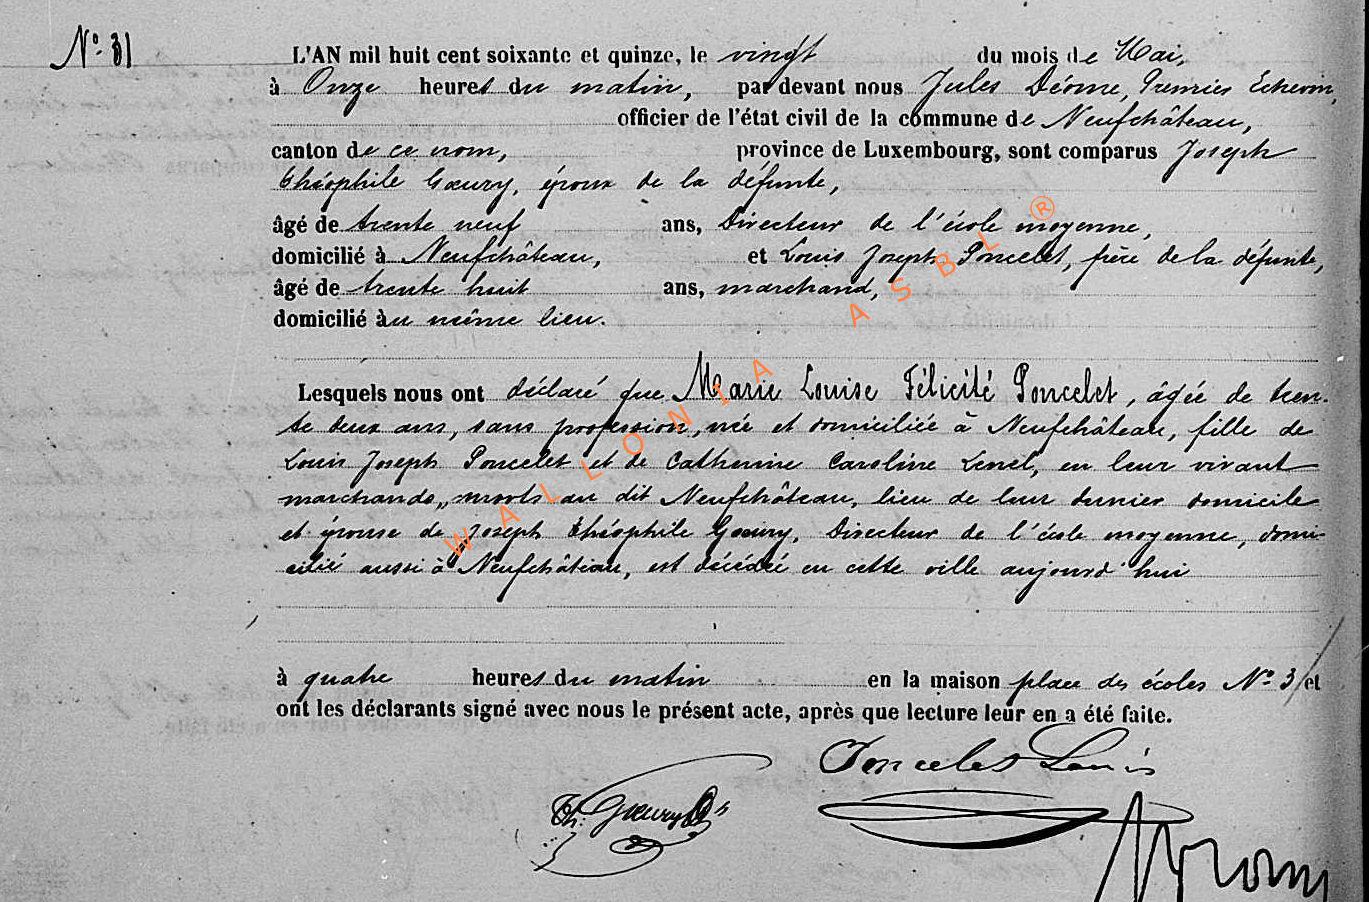 N° 31
L'AN mil huit cent soixante et quinze, le vingt du mois de Mai,
à Onze heures du matin, par devant nous Jules Déome, Premier Echevin,
officier de l'état civil de la commune de Neufchâteau,
canton de ce nom, province de Luxembourg, sont comparus Joseph
Théophile Gœury, époux de la défunte,
âgé de trente neuf ans, Directeur de l'école moyenne,
domicilié à Neufchâteau, et Louis Joseph Poncelet, frère de la défunte,
âgé de trente huit ans, marchand,
domicilié au même lieu.
Lesquels nous ont déclaré que Marie Louise Félicité Poncelet, âgée de tren-
te deux ans, sans profession, née et domiciliée à Neufchâteau, fille de
Louis Joseph Poncelet et de Catherine Caroline Lenel, en leur vivant
marchands, morts au dit Neufchâteau, lieu de leur dernier domicile
et épouse de Joseph Théophile Gœury, Directeur de l'école moyenne, domi-
cilié aussi à Neufchâteau, est décédée en cette ville aujourd'hui
à quatre heures du matin en la maison place des écoles N° 3 et
ont les déclarants signé avec nous le présent acte, après que lecture leur en a été faite.
Poncelet Louis
Th. Gœury
WALLONIA ASBL ®